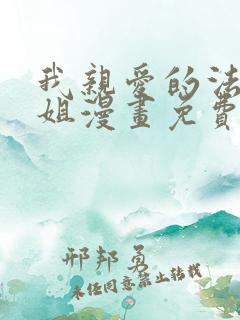 我親愛的法
姐漫畫免費
邢邦勇
未经同意禁止转载